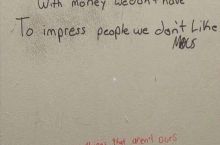 With money we don't have
To impress people we don't like
things that aren't ours